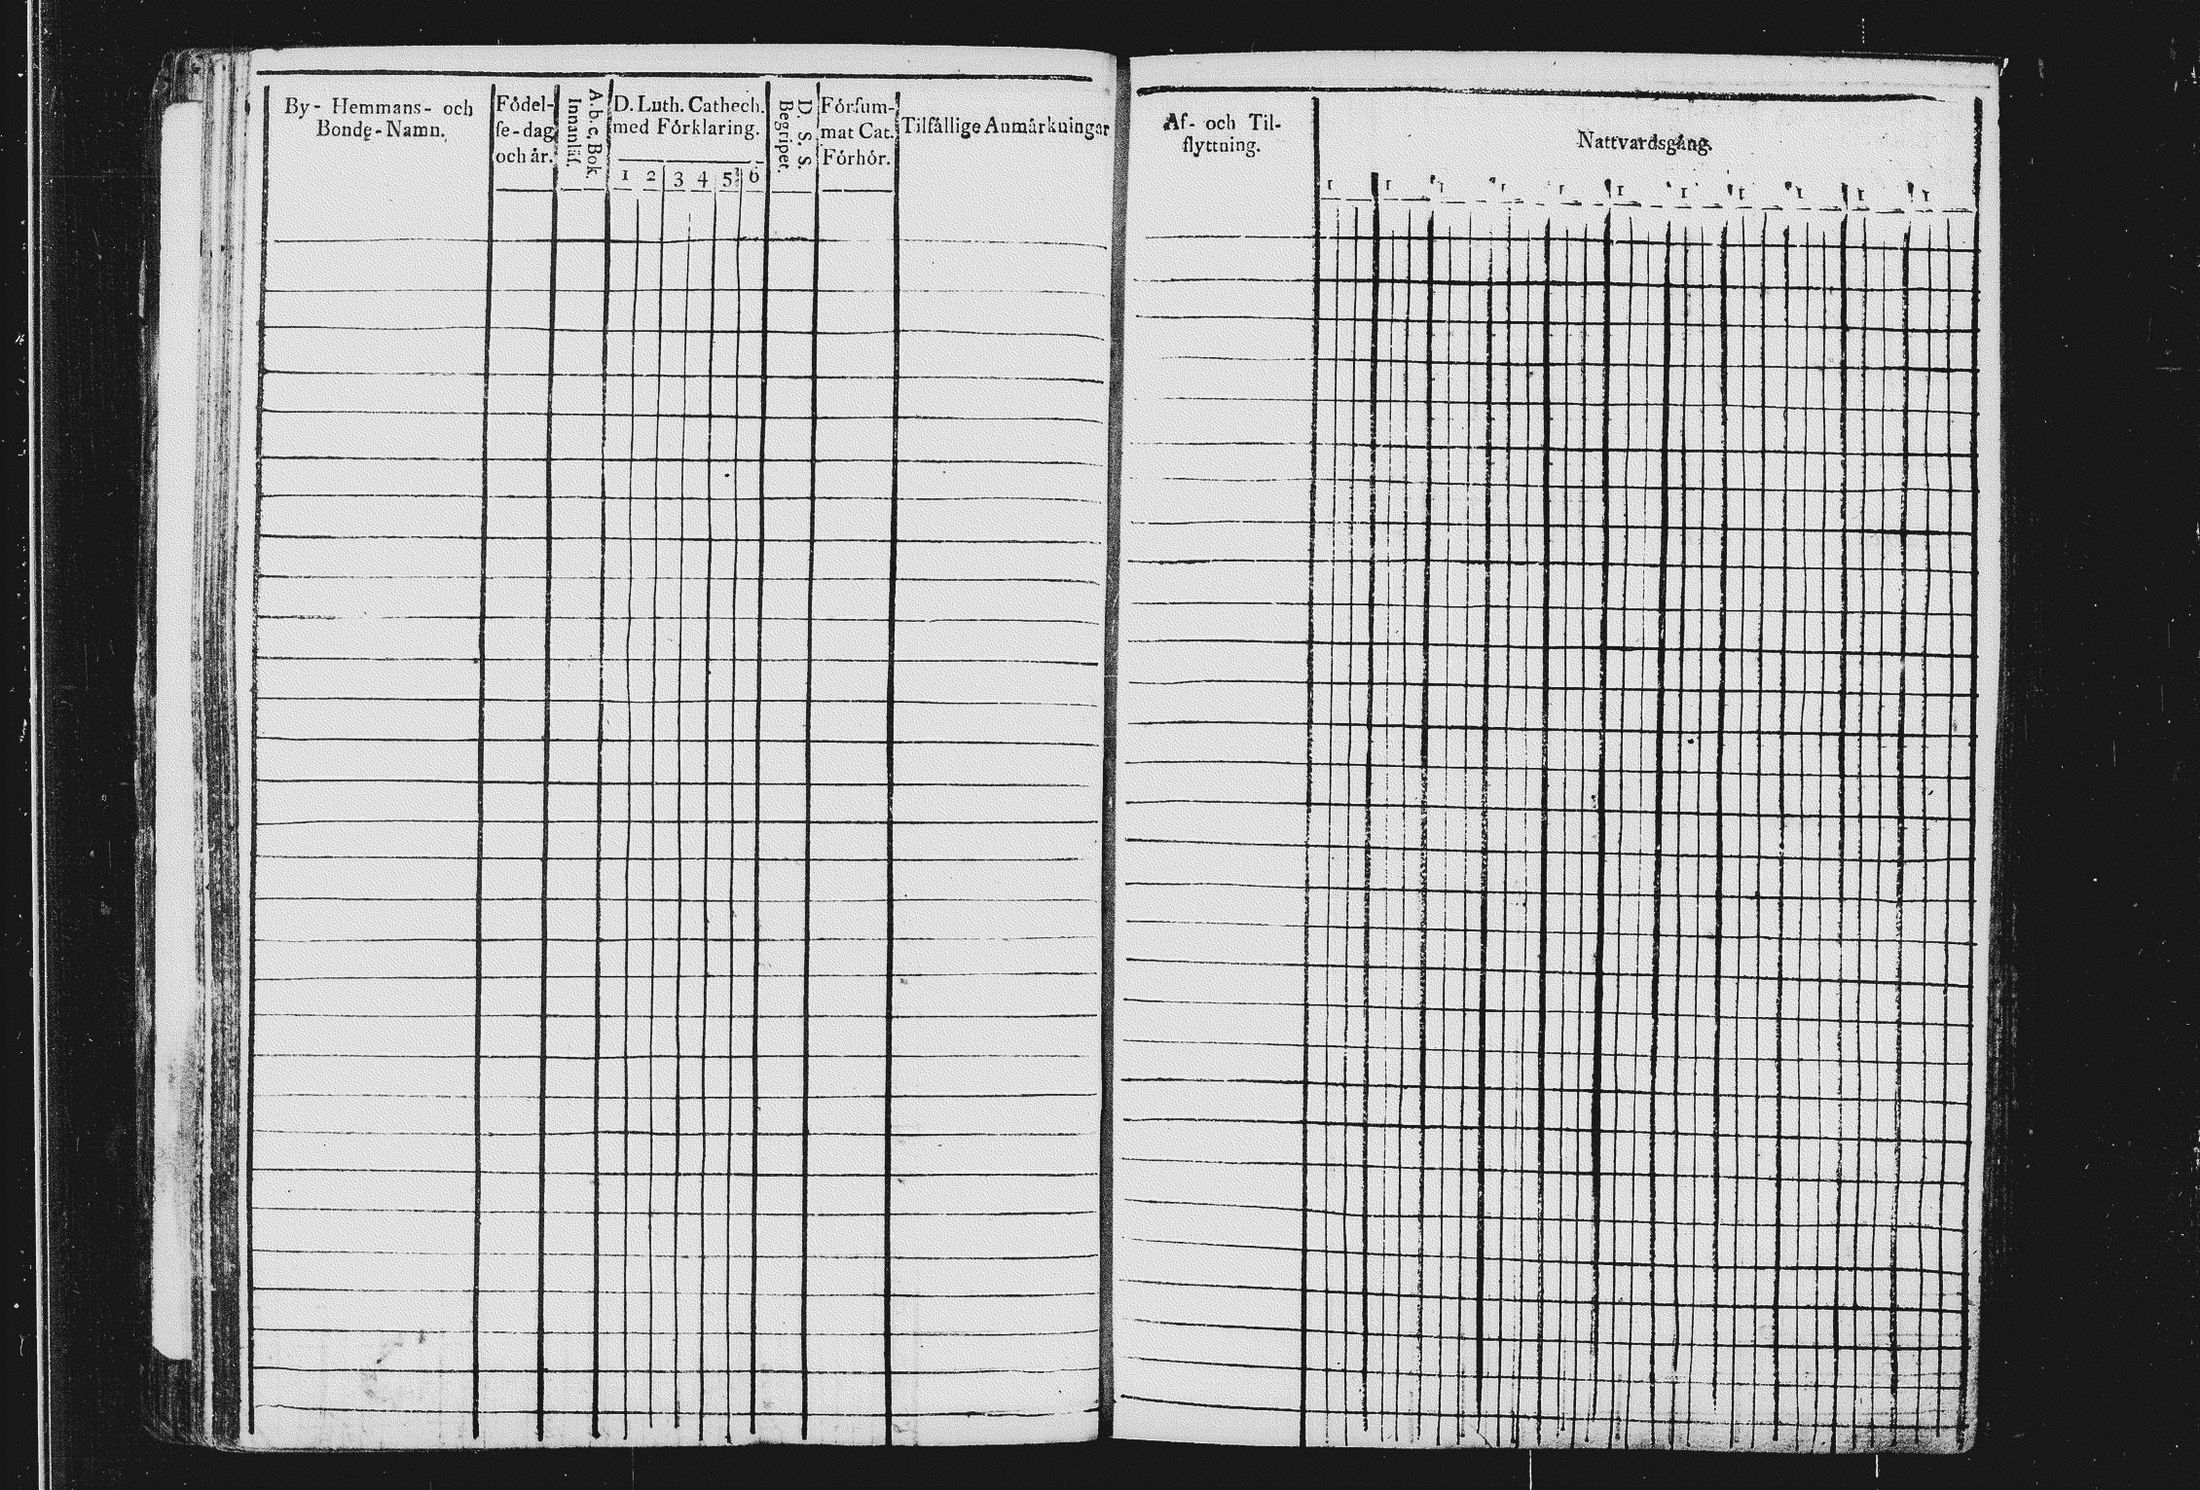 By- Hemmans- och
Bonde-Namn.
Födel-
se-dag
och år.
A.b.c. Bok.
Innanläs.
D. Luth. Cathech.
med Förklaring.
1 2 3 4 5 6
D. S. S.
Begripet.
Försum-
mat Cat.
Förhör.
Tilfällige Anmärkningar
Af- och Til-
flyttning.
Nattvardsgång.
1 1 1 1 1 1 1 1 1 1 1